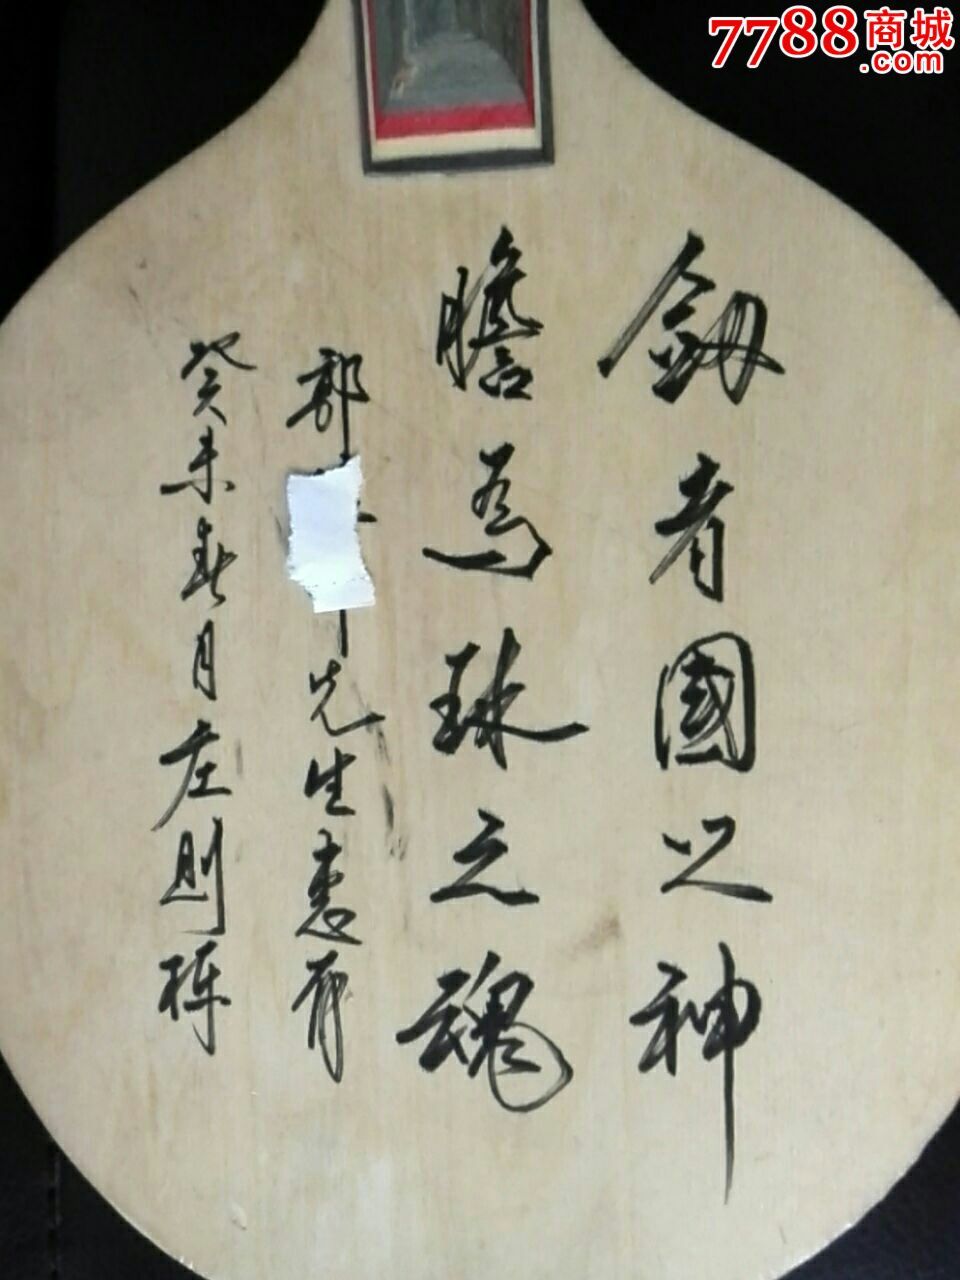 7788商城
.com
劔者國之神
膽為球之魂
郭
先生惠存
癸未春月庄则栋